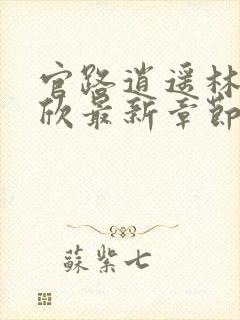 官路逍遥林
欣最新章節
蘇紫七